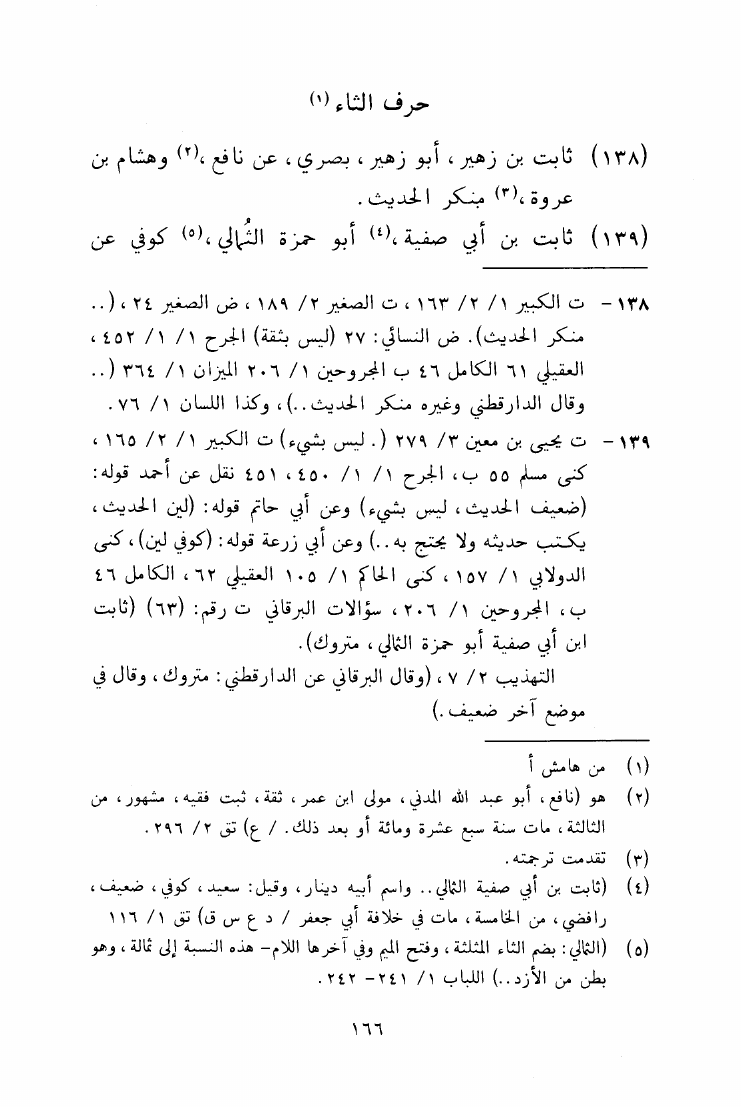 حرف الثاء (١)
(١٣٨) ثابت بن زهير ، أبو زهير ، بصري ، عن نافع ،(٢) وهشام بن
عروة ،(٣) منكر الحديث .
(١٣٩) ثابت بن أبي صفية ،(٤) أبو حمزة الثُمالي ،(٥) كوفي عن
١٣٨ – ت الكبير ١/ ٢/ ١٦٣ ، ت الصغير ٢/ ١٨٩ ، ض الصغير ٢٤ ، (..
منكر الحديث). ض النسائي: ٢٧ (ليس بثقة) الجرح ١/ ١/ ٤٥٢ ،
العقيلي ٦١ الكامل ٤٦ ب المجروحين ١/ ٢٠٦ الميزان ١/ ٣٦٤ (..
وقال الدارقطني وغيره منكر الحديث..) ، وكذا اللسان ١/ ٧٦ .
١٣٩ – ت يحيى بن معين ٣/ ٢٧٩ (. ليس بشيء) ت الكبير ١/ ٢/ ١٦٥ ،
كنى مسلم ٥٥ ب، الجرح ١/ ١/ ٤٥٠ ، ٤٥١ نقل عن أحمد قوله:
(ضعيف الحديث ، ليس بشيء) وعن أبي حاتم قوله: (لين الحديث ،
يكتب حديثه ولا يحتج به ..) وعن أبي زرعة قوله: (كوفي لين) ، كنى
الدولابي ١/ ١٥٧ ، كنى الحاكم ١/ ١٠٥ العقيلي ٦٢ ، الكامل ٤٦
ب ، المجروحين ١/ ٢٠٦ ، سؤالات البرقاني ت رقم: (٦٣) (ثابت
ابن أبي صفية أبو حمزة الثمالي ، متروك).
التهذيب ٢/ ٧ ، (وقال البرقاني عن الدارقطني: متروك ، وقال في
موضع آخر ضعيف .)
(١) من هامش أ
(٢) هو (نافع ، أبو عبد الله المدني ، مولى ابن عمر ، ثقة ، ثبت فقيه ، مشهور ، من
الثالثة ، مات سنة سبع عشرة ومائة أو بعد ذلك . / ع) تق ٢/ ٢٩٦ .
(٣) تقدمت ترجمته .
(٤) (ثابت بن أبي صفية الثمالي .. واسم أبيه دينار ، وقيل: سعيد ، كوفي ، ضعيف ،
رافضي ، من الخامسة ، مات في خلافة أبي جعفر / د ع س ق) تق ١/ ١١٦
(٥) (الثمالي: بضم الثاء المثلثة ، وفتح الميم وفي آخرها اللام– هذه النسبة إلى ثمالة ، وهو
بطن من الأزد ..) اللباب ١/ ٢٤١– ٢٤٢ .
١٦٦